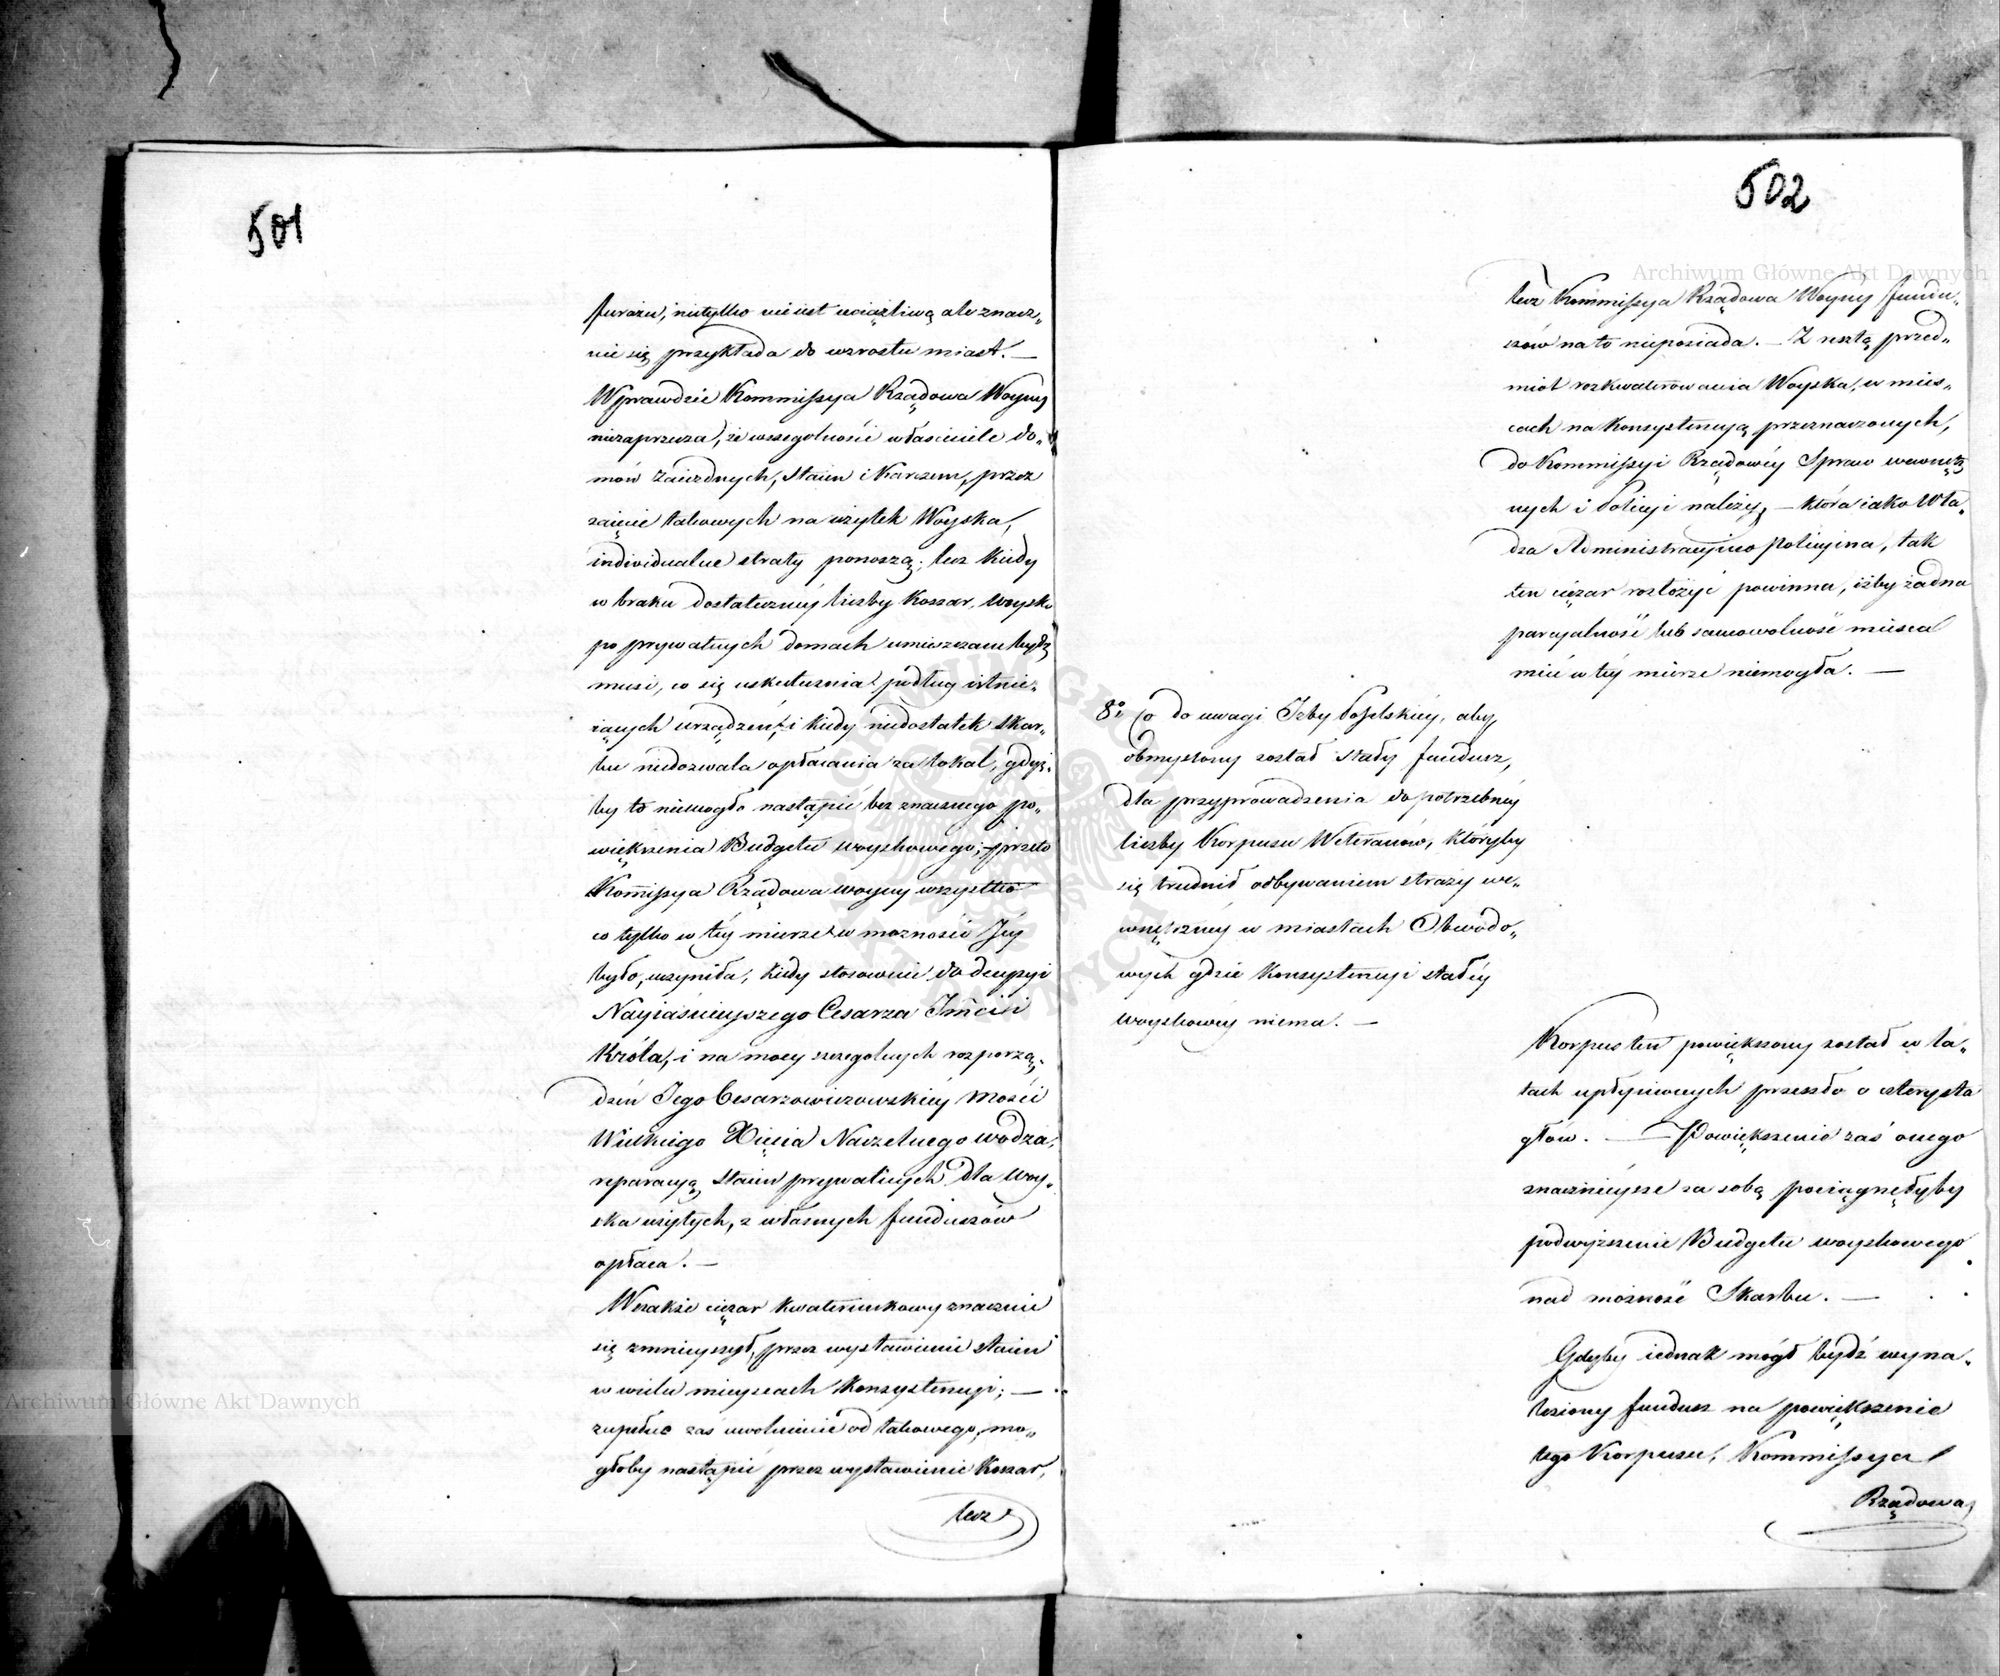 501
furażu, nietylko nie iest uciążliwą ale znacz„
nie się przykłada do wzrostu miast. —
Wprawdzie Kommissya Rządowa Woyny
niezaprzecza, że wszczególności właściciele do„
mów zaiezdnych, Staien i Karczem, przez
zaięcie takowych na użytek Woyska,
individualne straty ponoszą; lecz kiedy
w braku dostateczney liczby Koszar, woysko
po prywatnych domach umieszczane bydź
musi, co się uskutecznia podług istnie„
iących urządzeń, i kiedy niedostatek skar„
bu niedozwala opłacania za lokal, gdyż„
by to niemogło nastąpić bez znacznego po„
większenia Budgetu woyskowego; przeto
Kommissya Rządowa woyny wszystko
co tylko w tey mierze w możności Jey
było, uczyniła, kiedy stosownie do decyzyi
Nayiaśnieyszego Cesarza Jmci i
Króla, i na mocy szczególnych rozporzą„
dzeń Jego Cesarzowiczowskiéy Mości
Wielkiego Xięcia Naczelnego wodza,
reparacyą staien prywatnych dla woy„
ska użytych, z własnych funduszów
opłaca. —
Wszakże ciężar kwaterunkowy znacznie
się zmnieyszył, przez wystawienie staien
w wielu mieyscach konsystencyi; —
zupełne zaś uwolnienie od takowego, mo„
głoby nastąpić przez wystawienie Koszar,
lecz
502
lecz Kommissya Rządowa Woyny fundu„
szów na to nieposiada. — Z resztą przed„
miot rozkwaterowania Woyska, w mieś„
cach na Konsystencyą przeznaczonych,
do Kommissyi Rządowéy Spraw wewnętrz
nych i Policyi należy, — która iako Wła„
dza Administracyino Policyina, tak
ten ciężar rozłożyć powinna, iżby żadna
parcyalność lub samowolność mieysca
mieć w téy mierze niemogła. —
8o Co do uwagi Izby Poselskiéy, aby
obmyślony został stały fundusz,
dla przyprowadzenia do potrzebnéy
liczby Korpusu Weteranów, któryby
się trudnił odbywaniem straży we„
wnętrznéy w miastach Obwodo„
wych gdzie Konsystencyi stałéy
woyskowéy niema. —
Korpus ten powiększony został w la„
tach upłynionych przeszło o czterysta
głów. — Powiększenie zaś onego
znacznieysze za sobą pociągnęłyby
podwyższenie Budgetu woyskowego
nad możność Skarbu. —
Gdyby iednak mógł bydź wyna„
leziony fundusz na powiększenie
tego Korpusu, Kommissya
Rządowa
Archiwum Główne Akt Dawnych
Archiwum Główne Akt Dawnych